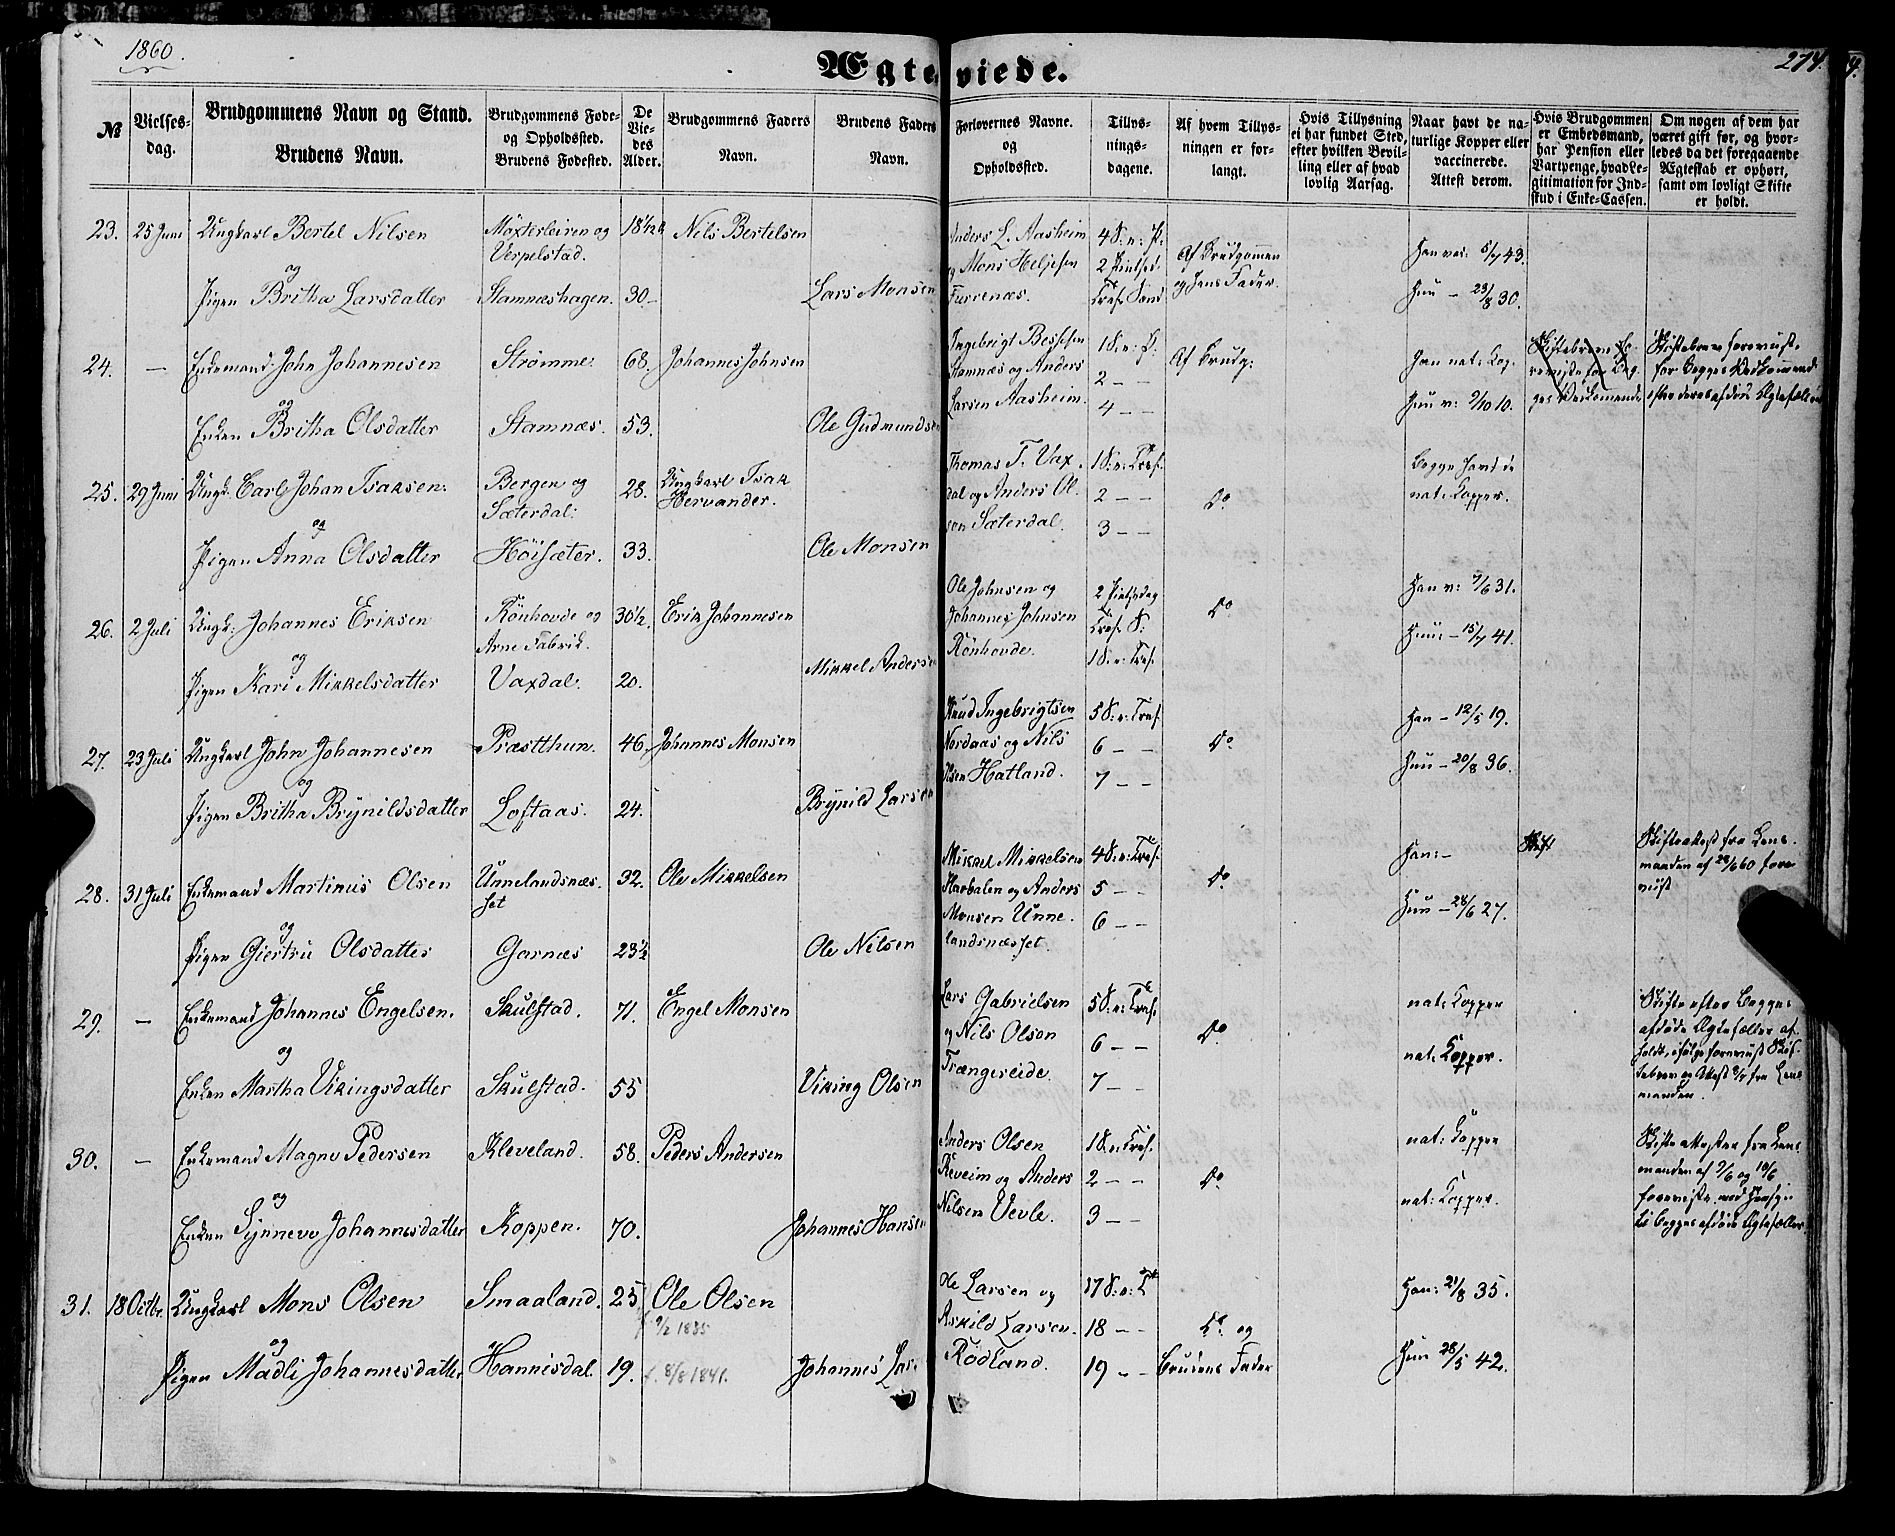 1860.
Ægteviede.
274.
№
Vielses-
dag.
Brudgommens Navn og Stand.
Brudens Navn.
Brudgommens Føde-
og Opholdssted.
Brudens Fødested.
De
Vie-
des
Alder.
Brudgommens Faders
Navn.
Brudens Faders
Navn.
Forlovernes Navne.
og
Opholdssted.
Tillys-
nings-
dagene.
Af hvem Tillys-
ningen er for-
langt.
Hvis Tillysning
ei har fundet Sted,
efter hvilken Bevil-
ling eller af hvad
lovlig Aarsag.
Naar havt de na-
turlige Kopper eller
vaccinerede.
Attest derom.
Hvis Brudgommen
er Embedsmand,
har Pension eller
Vartpenge, hvad Le-
gitimation for Ind-
skud i Enke-Cassen.
Om nogen af dem har
været gift før, og hvor-
ledes da det foregaaende
Ægteskab er ophørt,
samt om lovligt Skifte
er holdt.
23. 25 Juni Ungkarl Bertel Nilsen
Møxterleiren og
Verpelstad.
Nils Bertelsen
og
Pigen Britha Larsdatter Stamneshagen. 30 Lars Monsen
Anders L. Aasheim
og Mons Heljesen
Furrenæs.
4 S. n. P.
Af Brudgommen
og hens Fader.
Han vac: 5/7 43.
Hun – 23/8 30.
24. — Enkemand John Johannesen Strømme. 68. Johannes Johnsen
og
Enken Britha Olsdatter Stamnæs. 53. Ole Gudmundsen
Ingebrigt Bessesen
Stamnæs og Anders
Larsen Aasheim.
2 – –
4 – –
Af Brudg:
Han nat: Kop.
Hun v: 9/10 10.
Skiftebreve foreviist
for Begges Vedkommende
efter deres afdøde Ægtefæller
25. 29 Juni Ungk. Carl Johan Isaksen. Bergen og
Sæterdal. 28. Ungkarl Isak
Hervander.
og
Pigen Anna Olsdatter Höisæter. 33. Ole Monsen
Thomas T. Vax-
dal og Anders Ol-
sen Sæterdal.
1 S. n. Tref.
2 – –
3 – –
Do
Begge havt de
nat: Kopper.
26. 2 Juli Ungk: Johannes Eriksen Rönhovde og
Arne Fabrik. 30½. Erik Johannesen
og
Pigen Kari Mikkelsdatter Vaxdal. 20. Mikkel Andersen
Ole Johnsen og
Johannes Johnsen
Rönhovde.
2 Pintsedag
Tref. S.
1 S. n. Tref.
Do
Han v: 7/6 31.
Hun – 15/7 41.
27. 23 Juli Ungkarl John Johannesen Præstthun. 46. Johannes Monsen
og
Pigen Britha Brynildsdatter Loftaas. 24. Brynild Larsen
Knud Ingebrigtsen
Nordaas og Nils
Olsen Hatland.
5 S. n. Tref.
6 – –
7 – –
Do
Han – 12/5 19.
Hun – 20/8 36.
28. 31 Juli Enkemand Martinus Olsen Unnelandsnæs-
set 32. Ole Mikkelsen
og
Pigen Giertru Olsdatter Garnæs 23½ Ole Nilsen
Mikkel Mikkelsen
Haabalen og Anders
Monsen Unne-
landsnæsset.
4 S. n. Tref.
5 – –
6 – –
Do
Han –
Hun – 28/6 27.
Skifteattest fra Lens-
manden af 28/6 60 fore-
viist
29. — Enkemand Johannes Engelsen. Skulstad. 71. Engel Monsen
og
Enken Martha Vikingsdatter Skulstad. 55 Viking Olsen
Lars Gabrielsen
og Nils Olson
Trængereide.
5 S. n. Tref.
6 – –
7 – –
Do
nat: Kopper
nat: Kopper.
Skifte efter Begges
afdøde Ægtefæller af-
holdt, ifølge foreviist Skif-
tebrev og Attest fra Lens-
manden.
30. — Enkemand Magne Pedersen Kleveland. 58. Peders Andersen
og
Enken Synneve Johannesdatter Koppen. 70. Johannes Hansen
Anders Olsen
Reveim og Anders
Nilsen Vevle.
1 S. n. Tref.
2 – –
3 – –
Do
nat: Kopper
nat: Kopper.
Skifte Attester fra Lens-
manden af 9/6 og 10/6
foreviiste med Hensyn
til begges afdøde Ægtefæller
31. 18 Octbr. Ungkarl Mons Olsen Smaaland. 25 Ole Olsen
9/2 1835
og
Pigen Madli Johannesdatter Hannisdal. 19. f. 8/8 1841. Johannes Lars
Ole Larsen og
Askild Larsen.
Rødland.
17 S. n. T
18 – –
19 – –
Do og
Brudens Fader
Han: 21/8 35.
Hun 28/5 42.